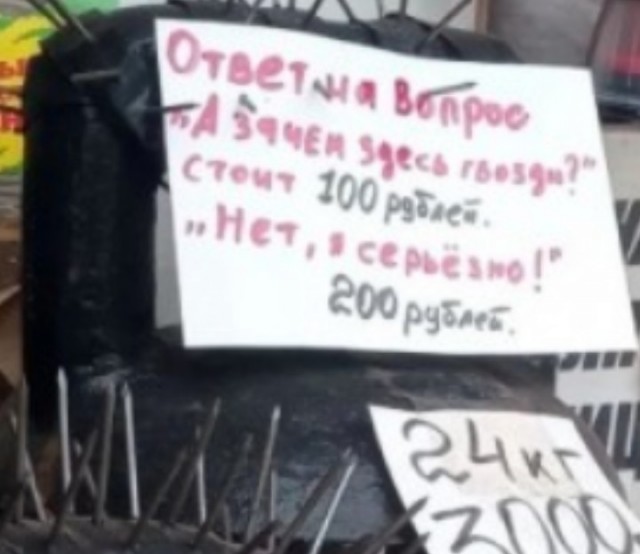 Ответ на вопрос
„А зачем здесь гвозди?"
стоит 100 рублей.
„Нет, я серьёзно!"
200 рублей.
24 кг
3000